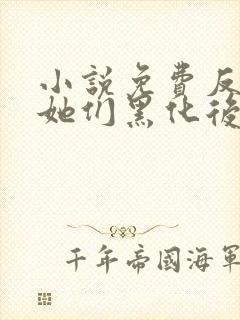 小説免費反
她们黑化後
千年帝國海軍